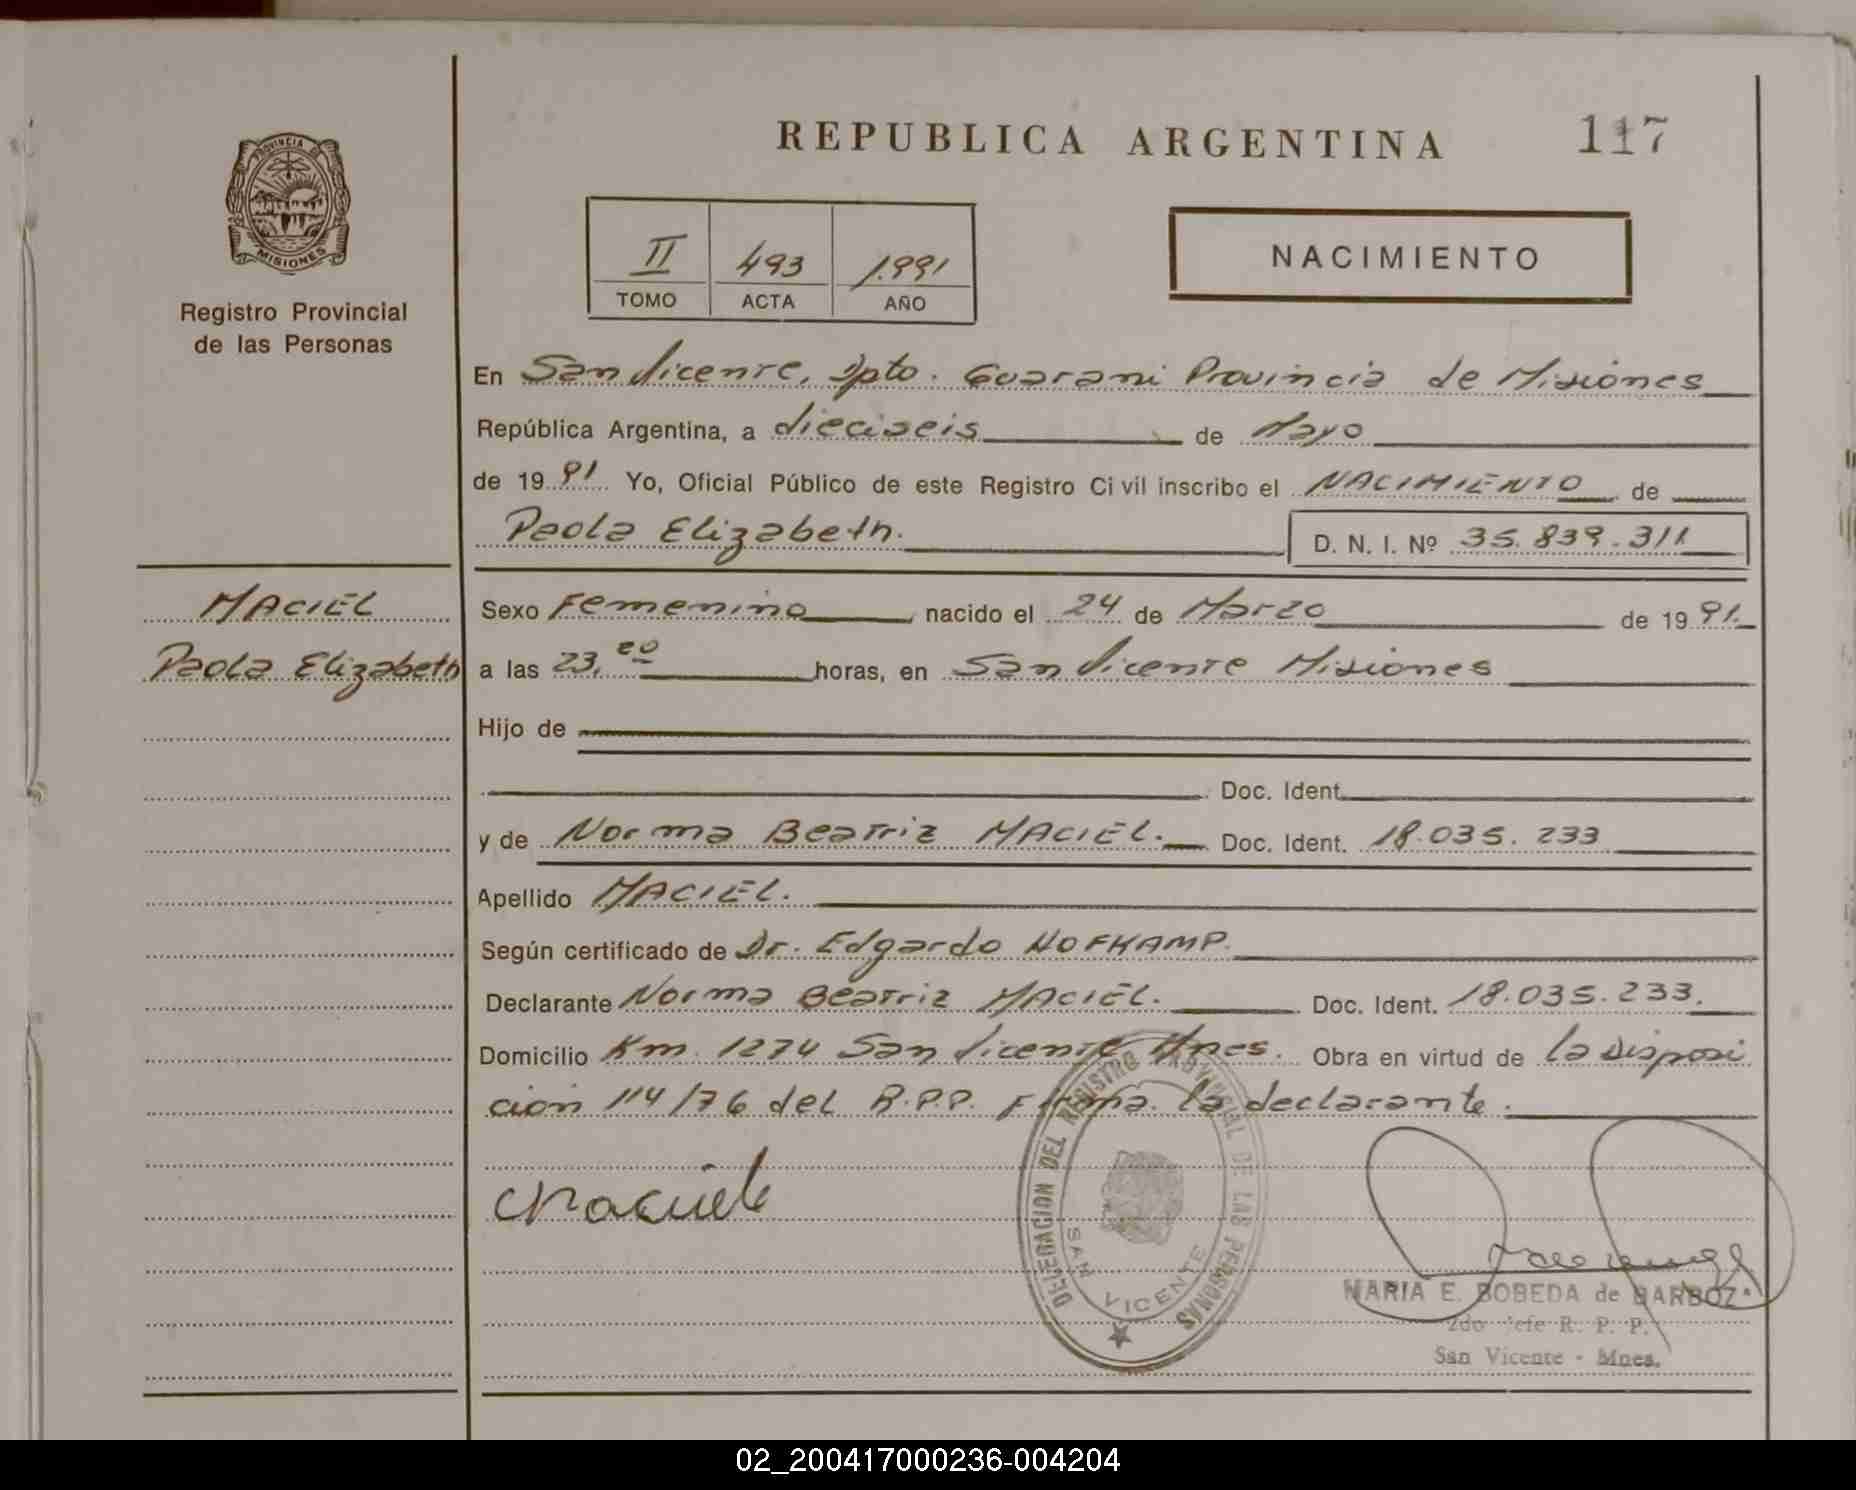 REPUBLICA ARGENTINA
117
PROVINCIA DE
MISIONES
Registro Provincial
de las Personas
II 493 1.991
TOMO ACTA AÑO
NACIMIENTO
En San Vicente, Dpto. Guarani Provincia de Misiones
República Argentina, a dieciseis de Mayo
de 19 91 Yo, Oficial Público de este Registro Civil inscribo el NACIMIENTO de
Paola Elizabeth. D. N. I. Nº 35.839.311
MACIEL
Paola Elizabeth
Sexo Femenino nacido el 24 de Marzo de 19 91.
a las 23, horas, en San Vicente Misiones
Hijo de
Doc. Ident.
y de Norma Beatriz MACIEL. Doc. Ident. 18.035.233
Apellido MACIEL.
Según certificado de Dr. Edgardo HOFKAMP.
Declarante Norma Beatriz MACIEL. Doc. Ident. 18.035.233.
Domicilio Km. 1274 San Vicente Mnes. Obra en virtud de la Disposi
cion 114/76 del R.P.P. Firma la declarante.
DELEGACION DEL REGISTRO PROVINCIAL DE LAS PERSONAS
SAN VICENTE
MARIA E. BOBEDA de BARBOZA
2do Jefe R. P. P.
San Vicente - Mnes.
02_200417000236-004204